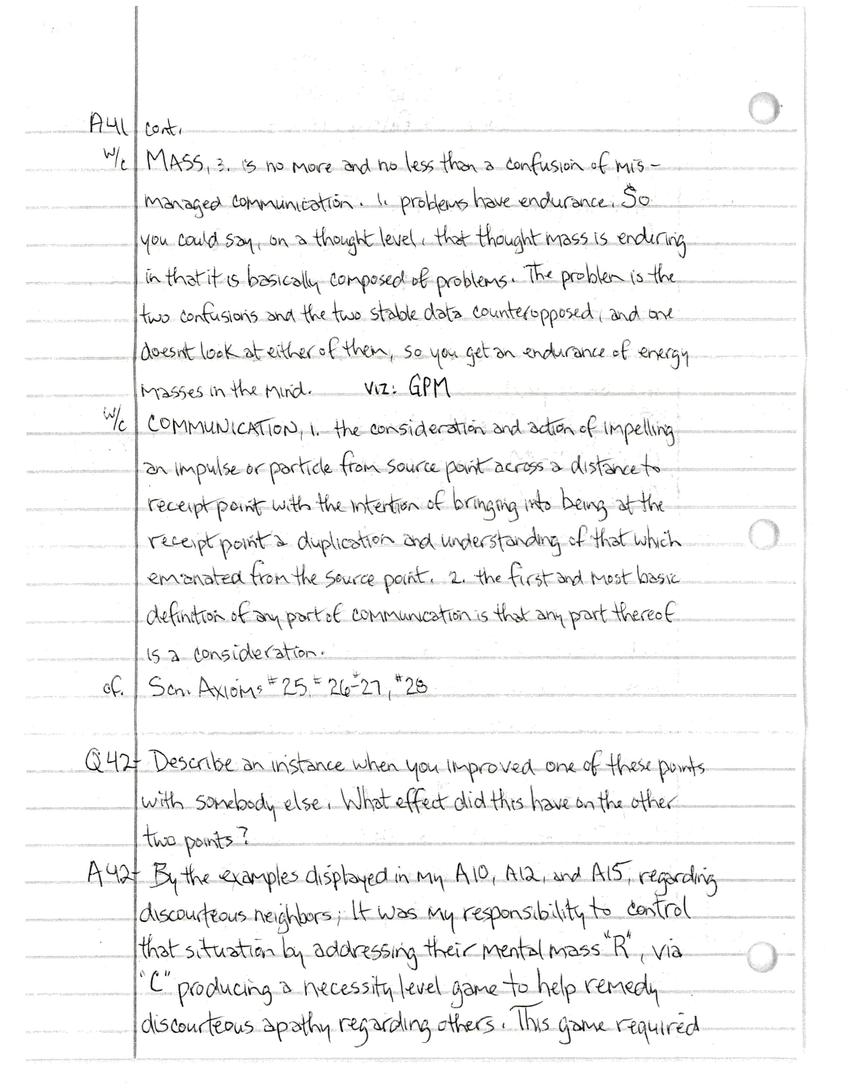 A41 cont.
w/c MASS, 3. is no more and no less than a confusion of mis-
managed communication. 1. problems have endurance. So
you could say, on a thought level, that thought mass is enduring
in that it is basically composed of problems. The problem is the
two confusions and the two stable data counteropposed, and one
doesnt look at either of them, so you get an endurance of energy
masses in the mind. VIZ: GPM
w/c COMMUNICATION, 1. the consideration and action of impelling
an impulse or particle from source point across a distance to
receipt point with the intention of bringing into being at the
receipt point a duplication and understanding of that which
emanated from the source point. 2. the first and most basic
definition of any part of communication is that any part thereof
is a consideration.
cf. Scn. Axioms #25, #26-27, #28
Q42- Describe an instance when you improved one of these points
with somebody else. What effect did this have on the other
two points?
A42- By the examples displayed in my A10, A12, and A15, regarding
discourteous neighbors; It was my responsibility to control
that situation by addressing their mental mass "R", via
"C" producing a necessity level game to help remedy
discourteous apathy regarding others. This game required